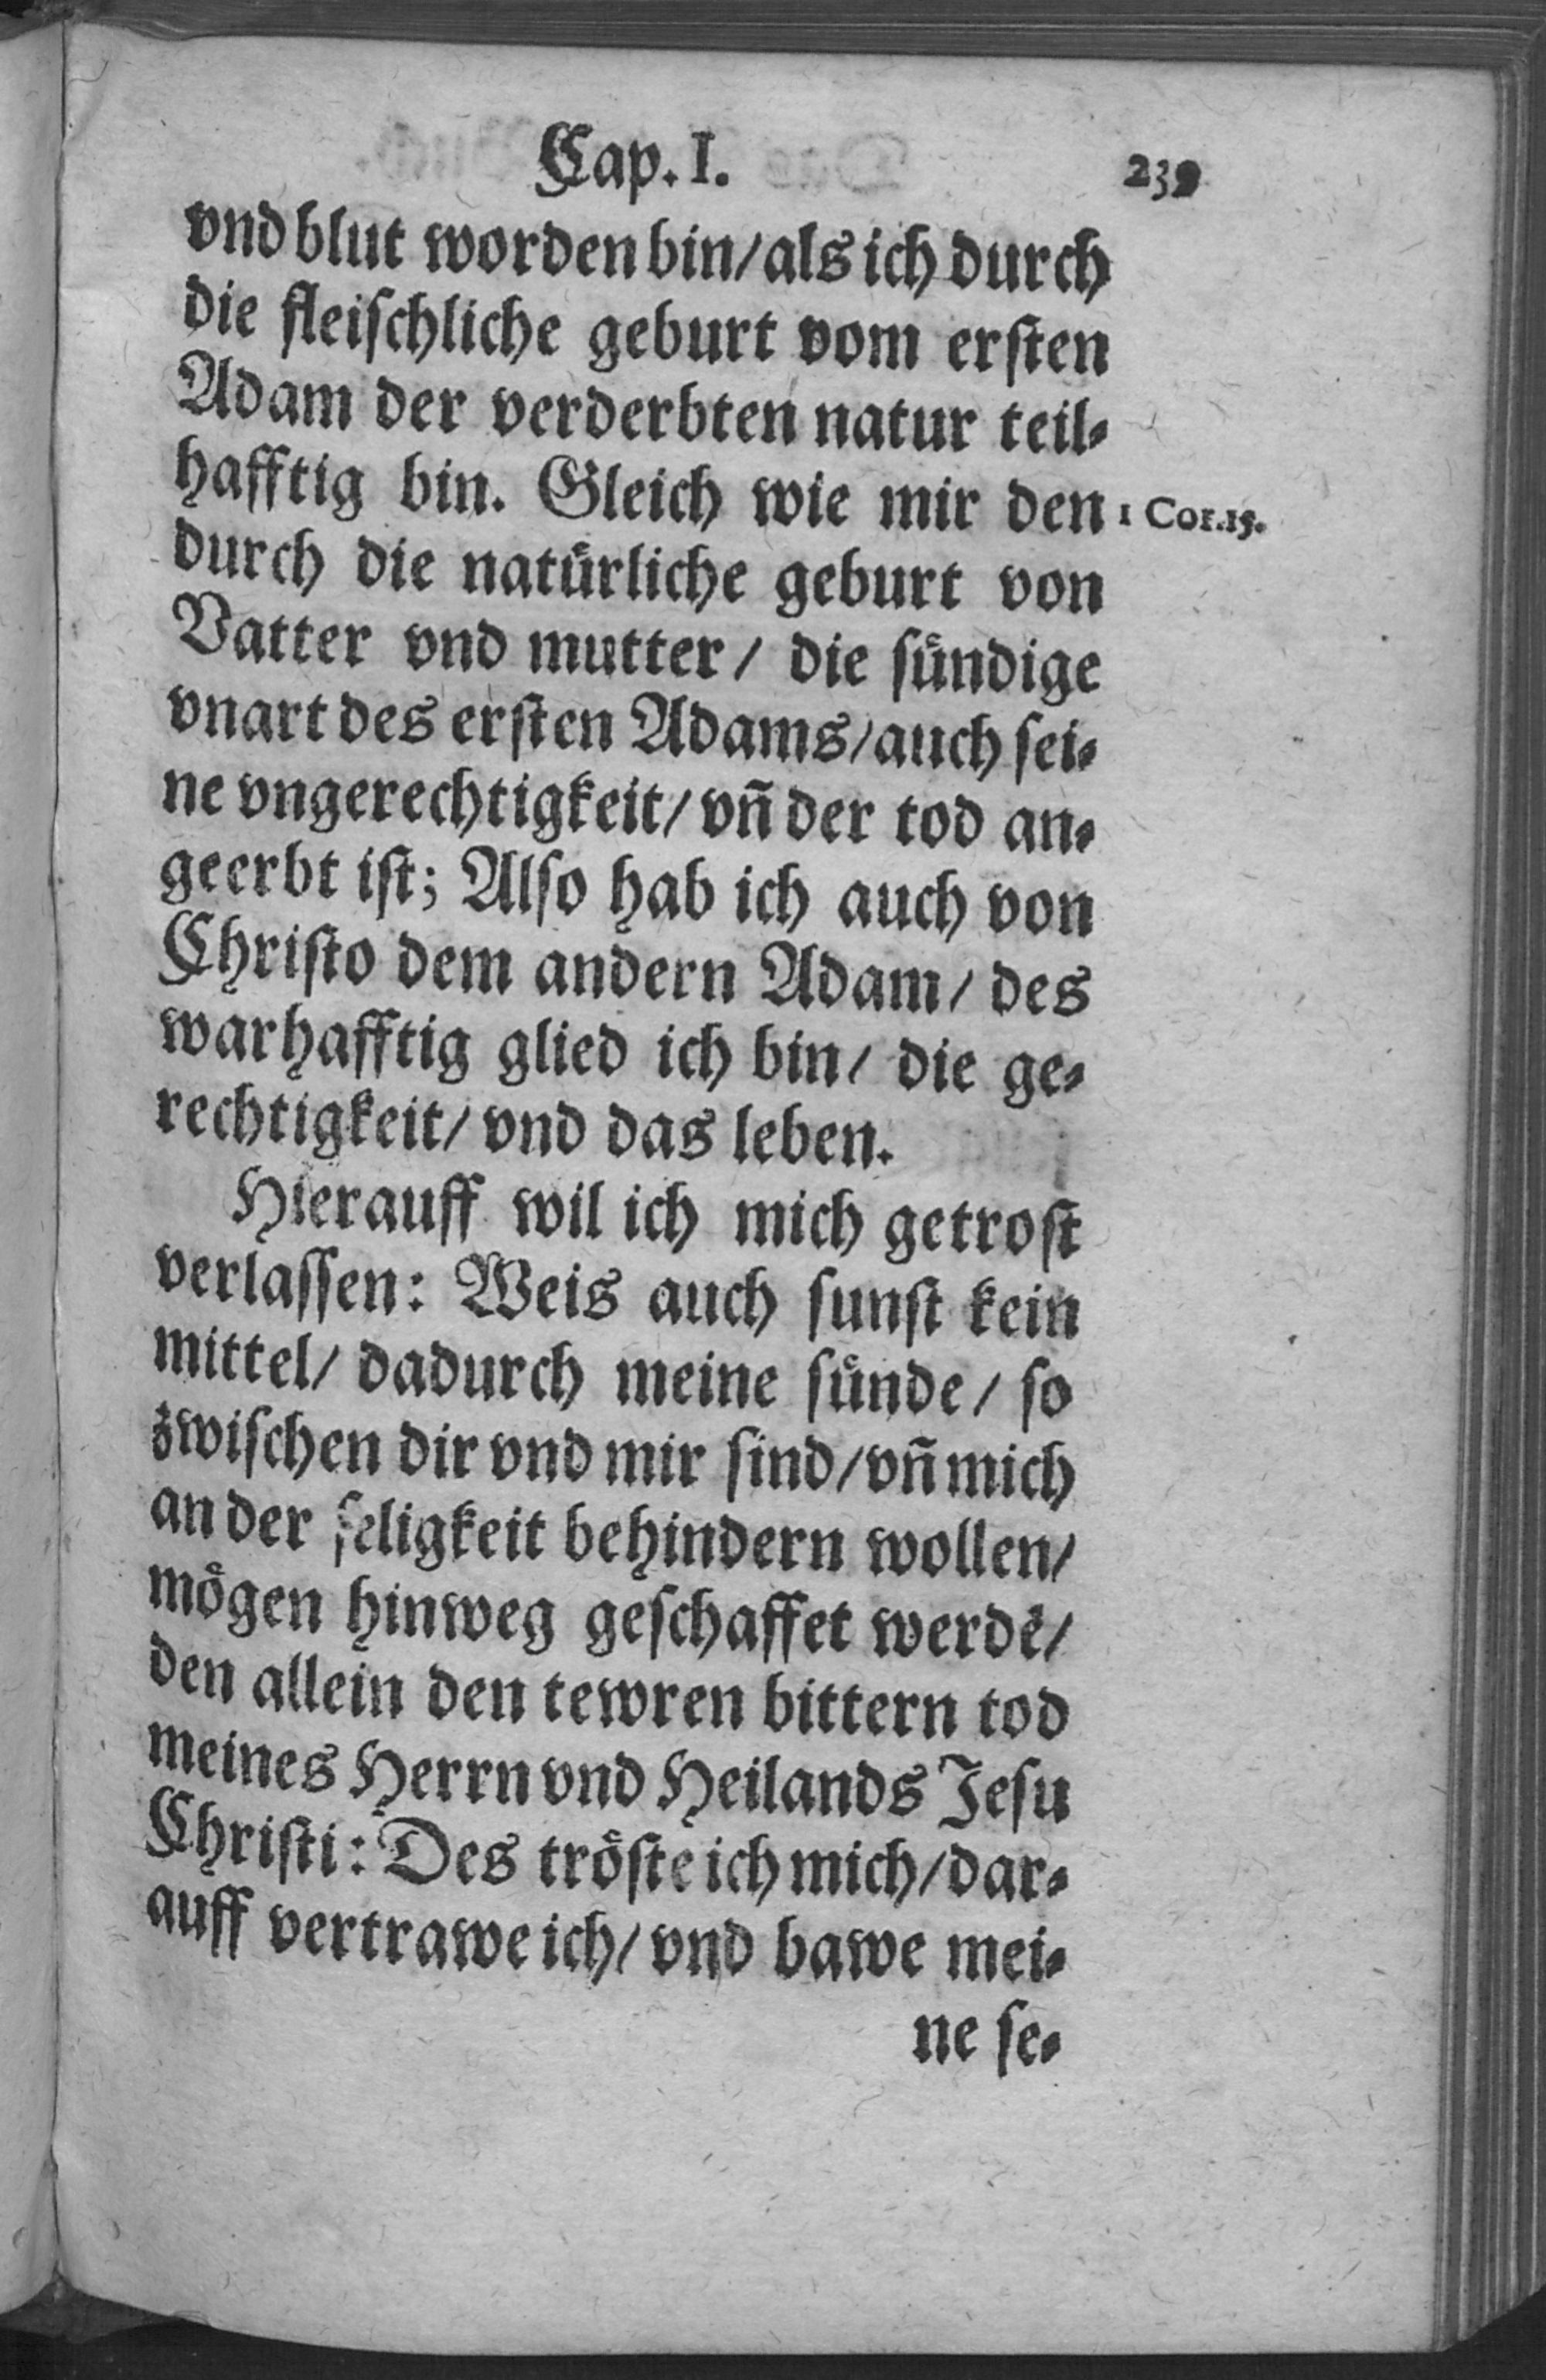 Cap. I. 239
vnd blut worden bin/ als ich durch
die fleiſchliche geburt vom erſten
Adam der verderbten natur teil⸗
hafftig bin. Gleich wie mir den 1 Cor.15.
durch die natuͤrliche geburt von
Vatter vnd mutter/ die ſuͤndige
vnart des erſten Adams/ auch ſei⸗
ne vngerechtigkeit/ vn̄ der tod an⸗
geerbt iſt; Alſo hab ich auch von
Chriſto dem andern Adam/ des
warhafftig glied ich bin/ die ge⸗
rechtigkeit/ vnd das leben.
Hierauff wil ich mich getroſt
verlaſſen: Weis auch ſunſt kein
mittel/ dadurch meine ſuͤnde/ ſo
zwiſchen dir vnd mir ſind/ vn̄ mich
an der ſeligkeit behindern wollen/
moͤgen hinweg geſchaffet werdē/
den allein den tewren bittern tod
meines Herrn vnd Heilands Jeſu
Chriſti: Des troͤſte ich mich/ dar⸗
auff vertrawe ich/ vnd bawe mei⸗
ne ſe⸗